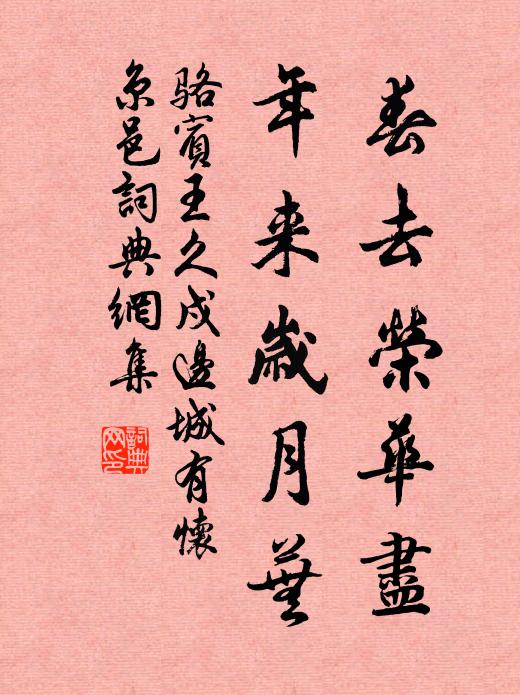 春去榮華盡
年来歲月蕪
駱賓王久戍邊城有懷
京邑詞典網集
詞典
网印